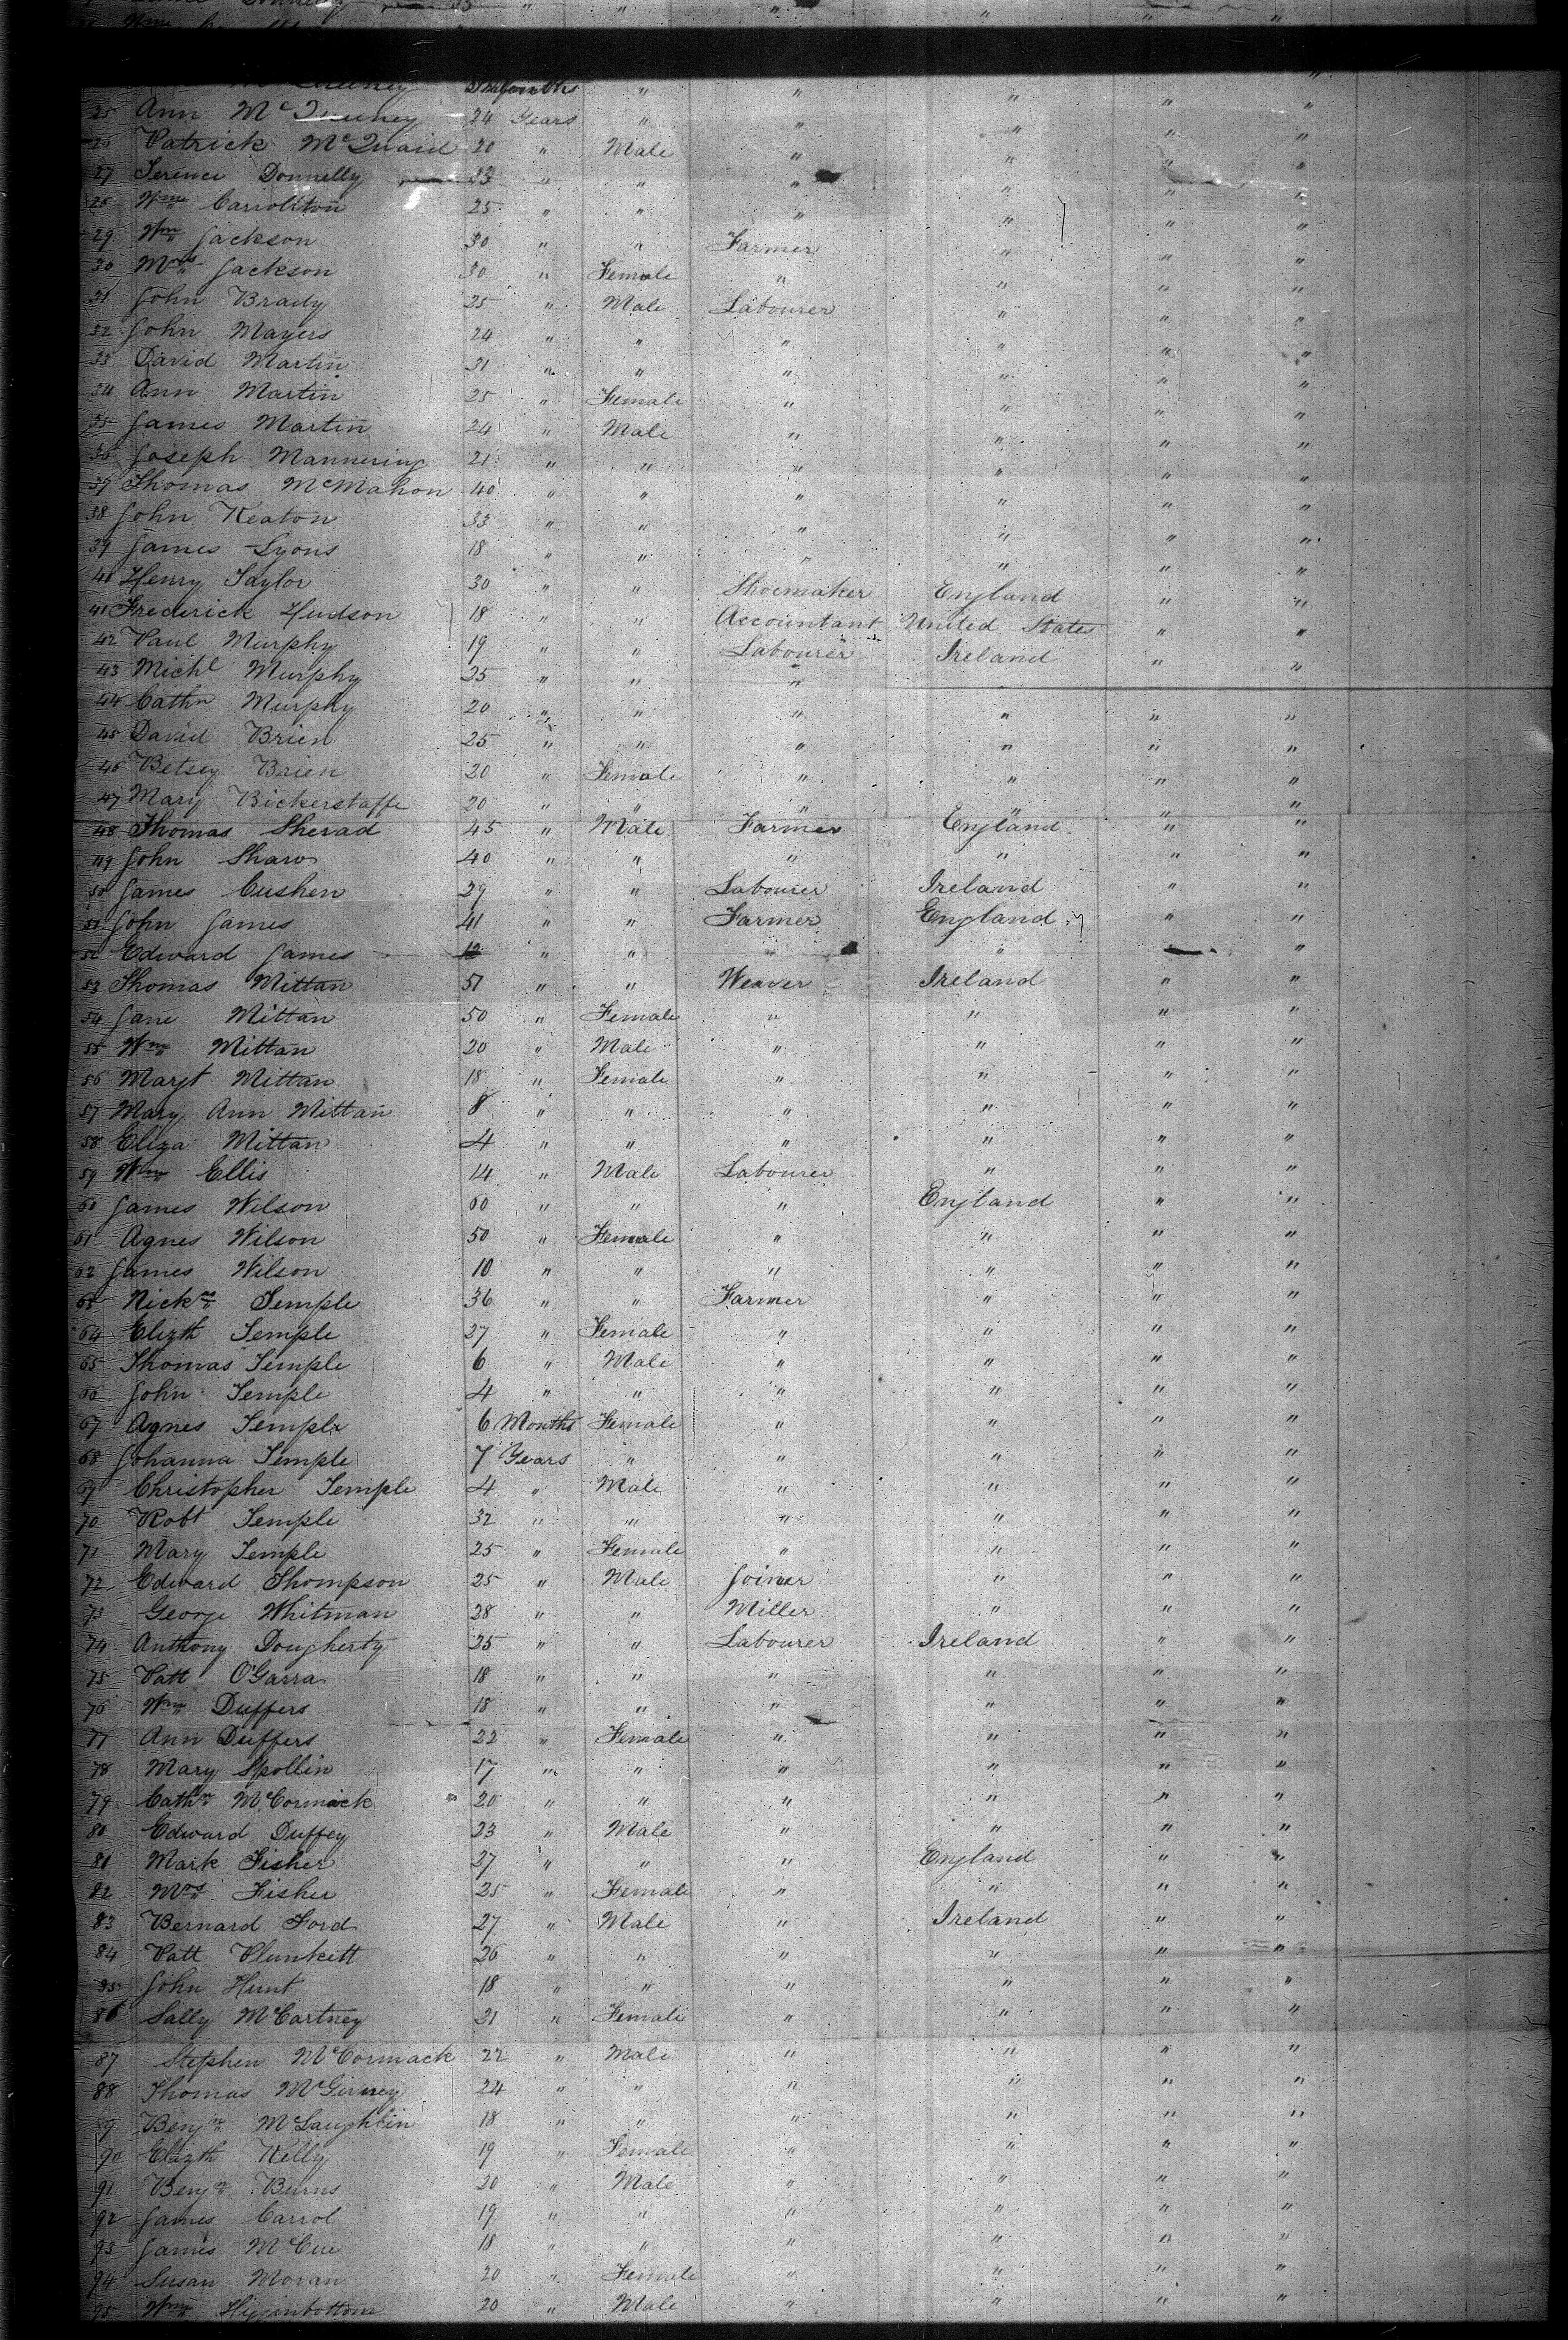 25 Ann Mc 24 Years " " " " "
26 Patrick McQuaid 20 " Male " " " "
27 Terence Donnelly 23 " " " " " "
28 Wm Carrollton 25 " " " " " "
29 Wm Jackson 30 " " Farmer " " "
30 Mrs Jackson 30 " Female " " " "
31 John Brady 25 " Male Labourer " " "
32 John Mayers 24 " " " " " "
33 David Martin 31 " " " " " "
34 Ann Martin 25 " Female " " " "
35 James Martin 24 " Male " " " "
36 Joseph Mannering 21 " " " " " "
37 Thomas McMahon 40 " " " " " "
38 John Keaton 35 " " " " " "
39 James Lyons 18 " " " " " "
40 Henry Taylor 30 " " Shoemaker England " "
41 Frederick Hudson 18 " " Accountant United States " "
42 Paul Murphy 19 " " Labourer Ireland " "
43 Michl Murphy 25 " " "
44 Cathn Murphy 20 " " " " " "
45 David Brien 25 " " " " " "
46 Betsey Brien 20 " Female " " " "
47 Mary Bickerstaffe 20 " " " " " "
48 Thomas Sherad 45 " Male Farmer England " "
49 John Shaw 40 " " " " " "
50 James Cushen 29 " " Labourer Ireland " "
51 John James 41 " " Farmer England " "
52 Edward James 12 " " " " "
53 Thomas Mittan 51 " " Weaver Ireland " "
54 Jane Mittan 50 " Female " " " "
55 Wm Mittan 20 " Male " " " "
56 Margt Mittan 18 " Female " " " "
57 Mary Ann Mittan 8 " " " " " "
58 Eliza Mittan 4 " " " " " "
59 Wm Ellis 14 " Male Labourer " " "
60 James Wilson 60 " " " England " "
61 Agnes Wilson 50 " Female " " " "
62 James Wilson 10 " " " " " "
63 Nicks Temple 36 " " Farmer " " "
64 Elizth Temple 27 " Female " " " "
65 Thomas Temple 6 " Male " " " "
66 John Temple 4 " " " " " "
67 Agnes Temple 6 Months Female " " " "
68 Johanna Temple 7 Years " " " " "
69 Christopher Temple 4 " Male " " " "
70 Robt Temple 32 " " " " " "
71 Mary Temple 25 " Female " " " "
72 Edward Thompson 25 " Male Joiner " " "
73 George Whitman 28 " " Miller " " "
74 Anthony Dougherty 25 " " Labourer Ireland " "
75 Patt O'Garra 18 " " " " " "
76 Wm Duffers 18 " " " " " "
77 Ann Duffers 22 " Female " " " "
78 Mary Spollin 17 " " " " " "
79 Cathn McCormack 20 " " " " " "
80 Edward Duffey 23 " Male " " " "
81 Mark Fisher 27 " " " England " "
82 Mrs Fisher 25 " Female " " " "
83 Bernard Ford 27 " Male " Ireland " "
84 Patt Plunkett 26 " " " " " "
85 John Hunt 18 " " " " " "
86 Sally McCartney 21 " Female " " " "
87 Stephen McCormack 22 " Male " " " "
88 Thomas McGirney 24 " " " " " "
89 Benjn McLaughlin 18 " " " " " "
90 Elizth Kelly 19 " Female " " " "
91 Benjn Burns 20 " Male " " " "
92 James Carrol 19 " " " " " "
93 James McCue 18 " " " " " "
94 Susan Moran 20 " Female " " " "
95 Wm Higginbottom 20 " Male " " " "